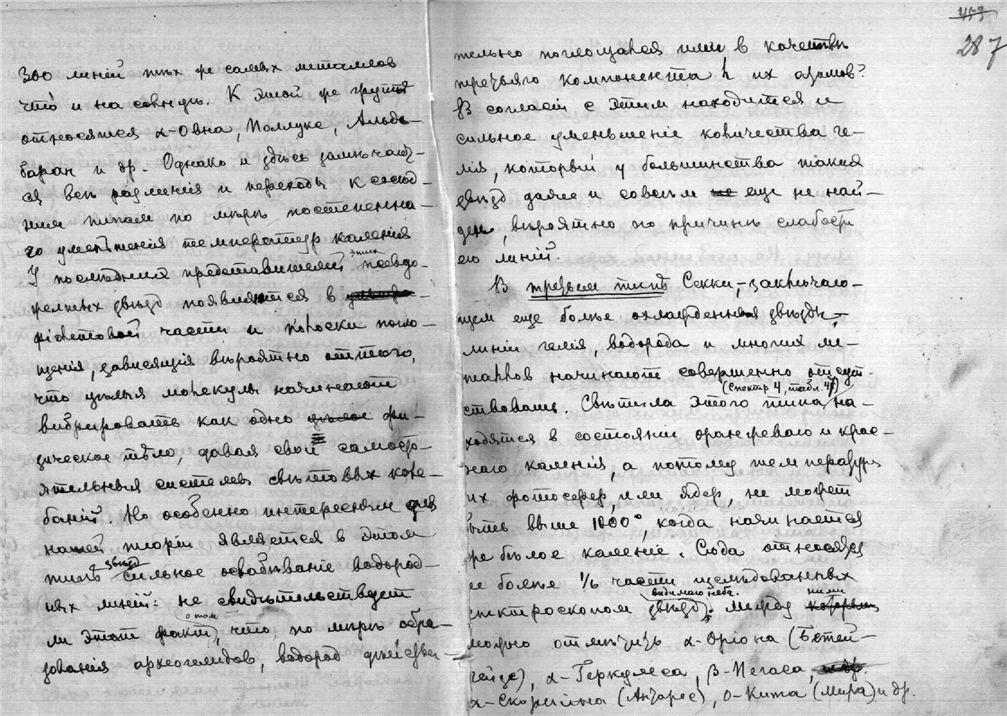 300 линій тѣхъ же самыхъ металловъ
что и на солнцѣ. К этой же группѣ
относятся α-Овна, Поллукс, Альде-
баран и др. Однако и здѣсь замѣчают-
ся всѣ различія и переходы к сосѣд-
ним типам по мѣрѣ постепенна-
го уменьшенія температур каленія
У послѣдних представителей этих псевдо-
релтных звѣзд появляются в
фіолетовой части и полоски погло-
щенія, зависящія вѣроятно оттого,
что цѣлыя молекулы начинают
вибрировать как одно цѣлое фи-
зическое тѣло, давая свои самосто-
ятельныя системы свѣтовых коле-
баній. Но особенно интересным для
нашей теоріи является в этом
типѣ звѣзд сильное ослабѣваніе водород-
ных линій: не свидѣтельствует
ли этот факт о том, что, по мѣрѣ обра-
зованія археогелидов, водород дѣйстви-
287
тельно поглощался ими в качествѣ
третьяго компонента h их атомов?
В согласіи с этим находится и
сильное уменьшеніе количества ге-
лія, который у большинства таких
звѣзд далее и совсѣм не еще не най-
ден, вѣроятно по причинѣ слабости
его линій.
В третьем типѣ Секки, заключаю-
щем еще болѣе охлажденныя звѣзды,
линіи гелія, водорода и многих ме-
таллов начинают совершенно отсут-
(Спектр 4, табл. 47)
ствовать. Свѣтила этого типа на-
ходятся в состояніи оранжеваго и крас-
наго каленія, а потому температура
их фотосфер, или ядер, не может
быть выше 1000°, когда начинается
уже бѣлое каленіе. Сюда относятся
не болѣе 1/6 части изслѣдованных
спектроскопом звѣзд видимаго неба. Между ними
можно отмѣтить α-Оріона (Бетей-
гейзе), α-Геркулеса, β-Пегаса, и др.
α-Скорпіона (Антарес), о-Кита (Мира) и др.